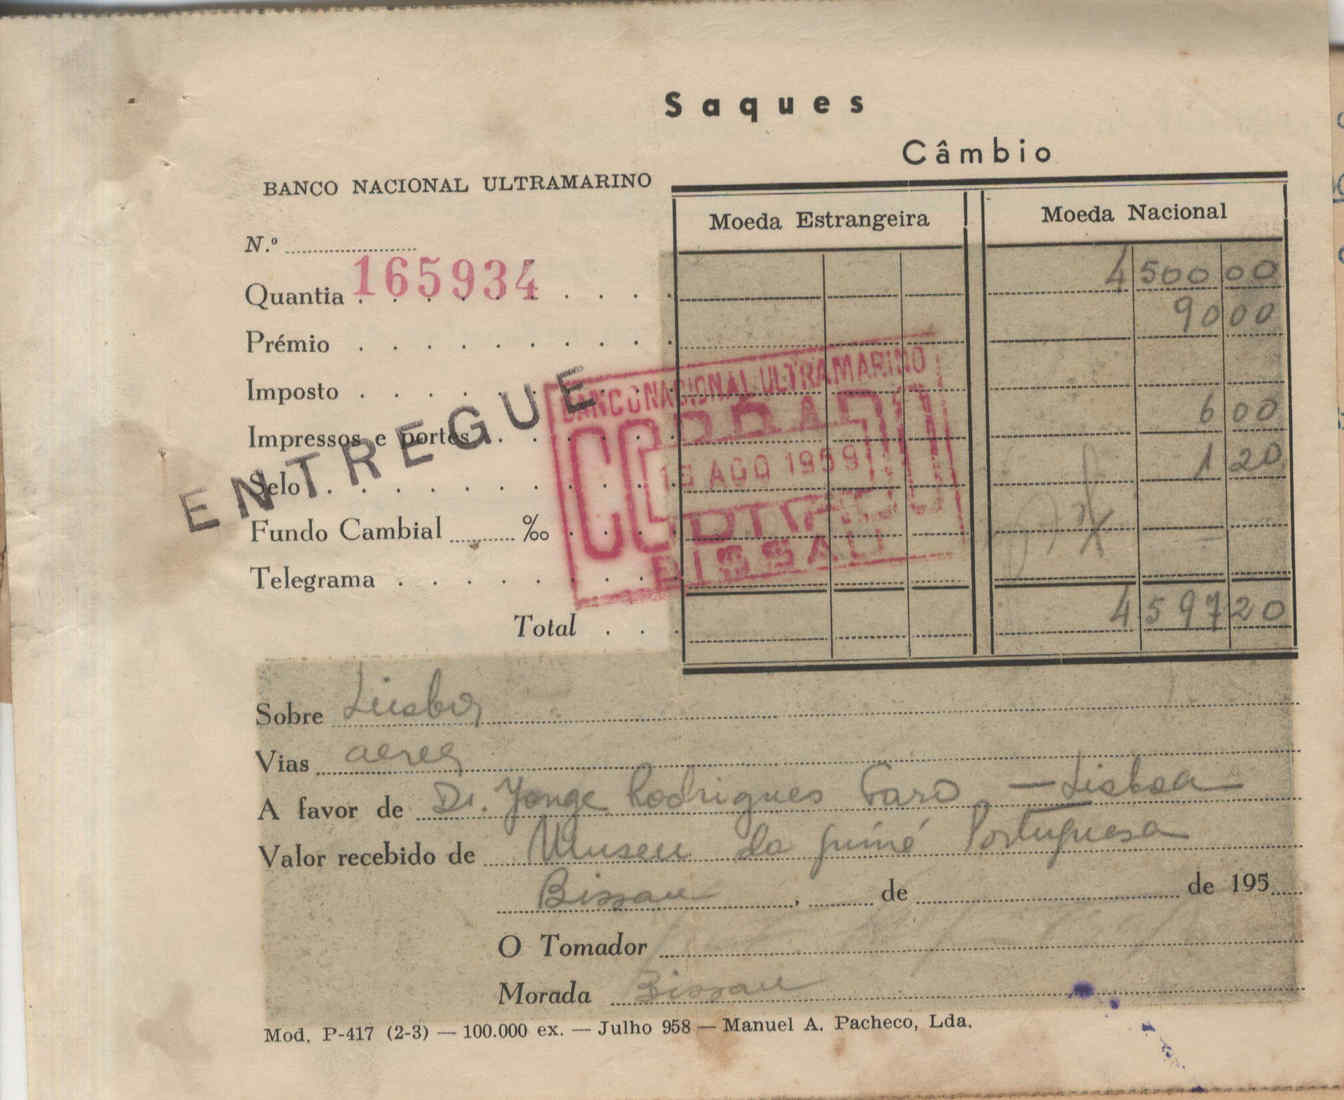 Saques
Câmbio
BANCO NACIONAL ULTRAMARINO
Moeda Estrangeira
Moeda Nacional
N.º
165934
Quantia 4 500 00
Prémio 90 00
Imposto
Impressos e portes 6 00
Selo 1 20
Fundo Cambial ‰
Telegrama
Total 4 597 20
ENTREGUE
BANCO NACIONAL ULTRAMARINO
COBRADO
AGO 1959
BISSAU
Sobre Lisboa
Vias aerea
A favor de Dr. Jorge Rodrigues Faro — Lisboa
Valor recebido de Museu da Guiné Portuguesa
Bissau, de de 195
O Tomador
Morada Bissau
Mod. P-417 (2-3) — 100.000 ex. — Julho 958 — Manuel A. Pacheco, Lda.